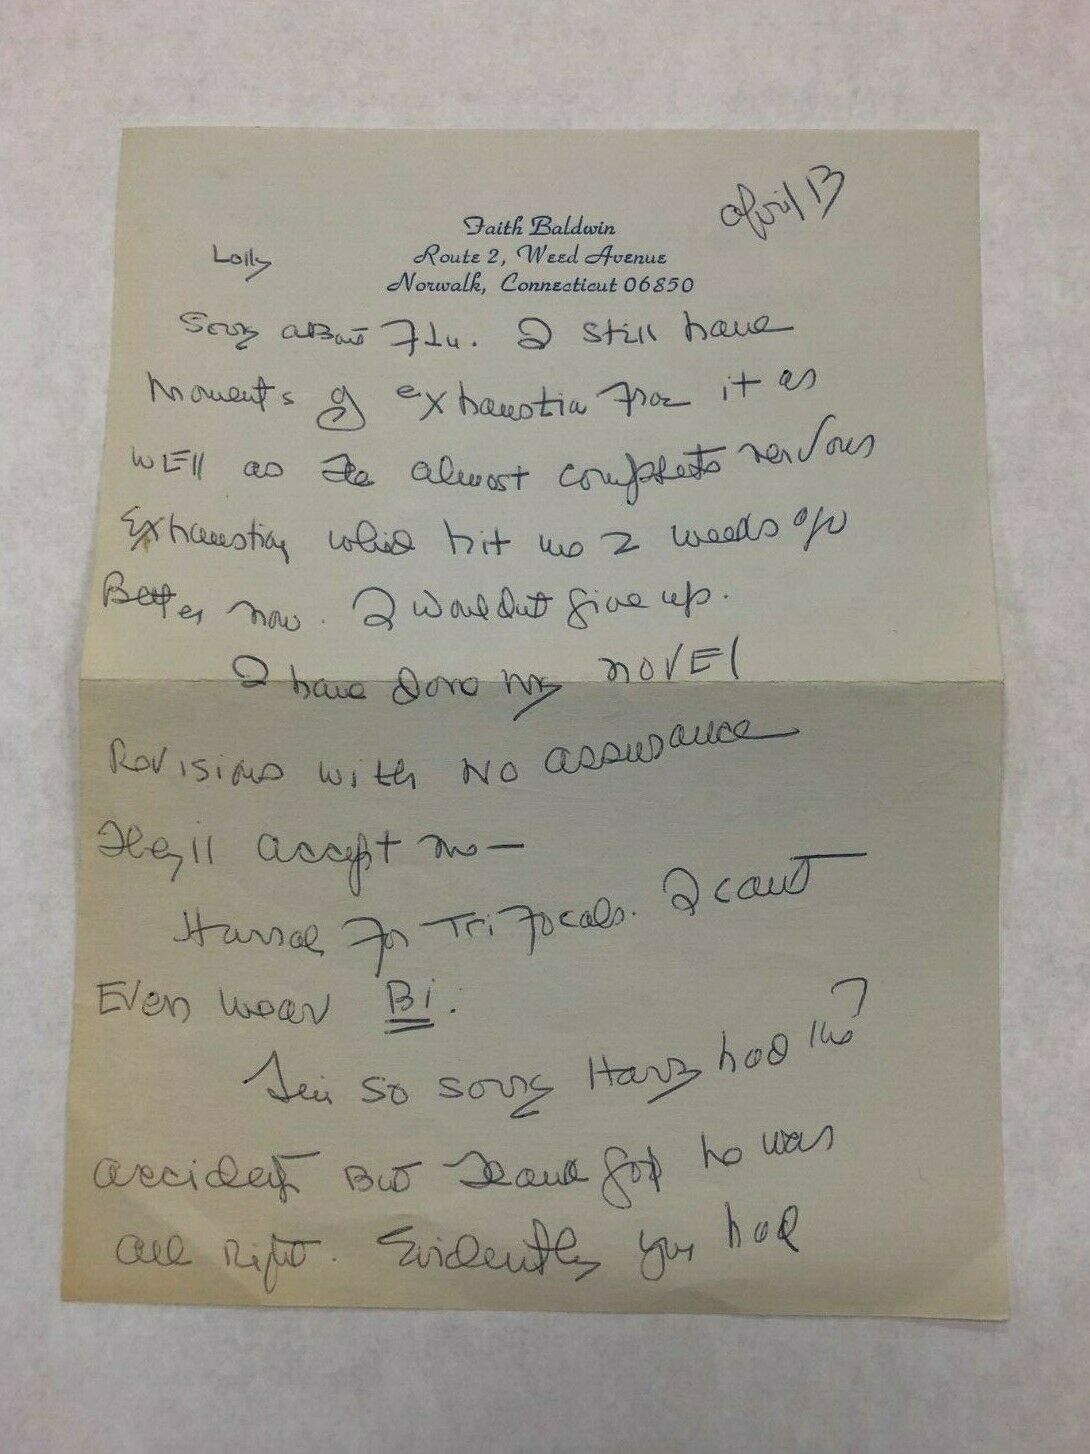 april 13
Faith Baldwin
Route 2, Weed Avenue
Norwalk, Connecticut 06850
Lolly
Sorry about Flu. I still have
moments of exhaustion from it as
well as the almost complete nervous
Exhaustion which hit me 2 weeks ago
Better now. I wouldnt give up.
I have done my NOVEL
Revisions with NO assurance
They'll accept me—
Hurrah for Trifocals. I cant
Even wear Bi.
I'm so sorry Harry had the
accident But Thank God he was
all right. Evidently you had